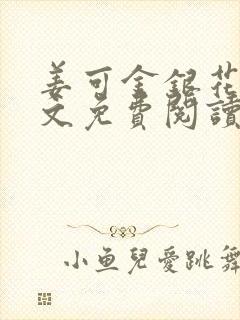 姜可金銀花
文免費閱讀
小魚兒愛跳舞